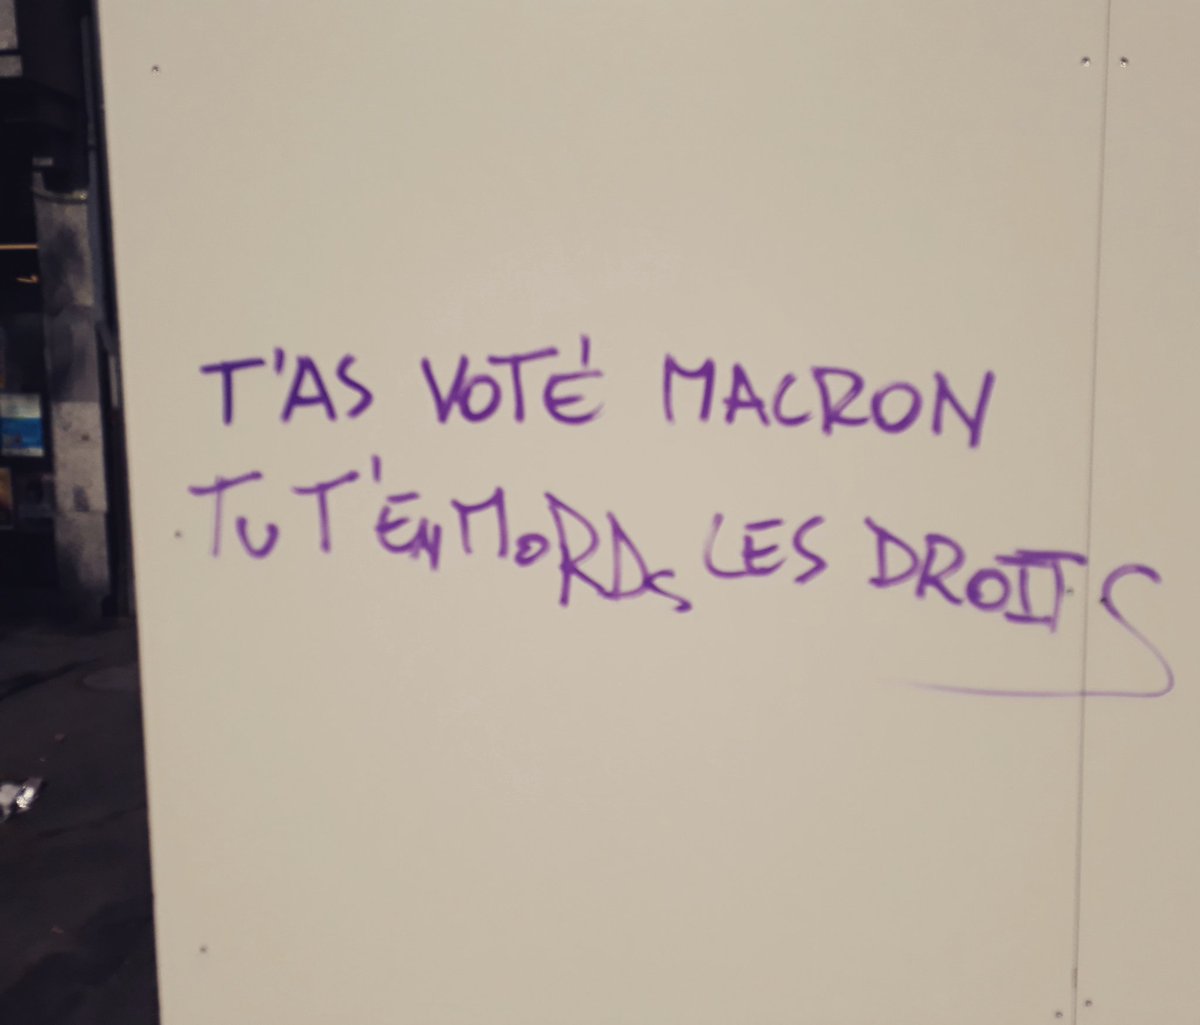 T'AS VOTÉ MACRON
TU T'EN MORDS LES DROITS